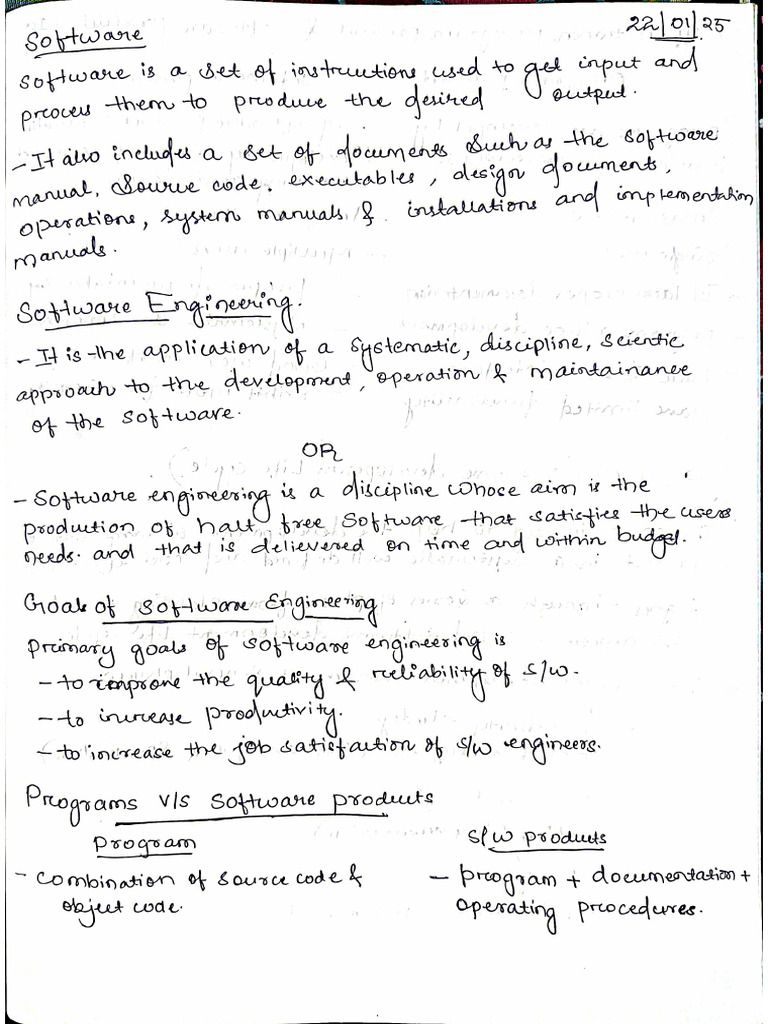 22/01/25
Software
Software is a set of instructions used to get input and
process them to produce the desired output.
- It also includes a set of documents such as the software
manual, source code, executables, design documents,
operations, system manuals & installations and implementation
manuals.
Software Engineering.
- It is the application of a systematic, discipline, scientic
approach to the development, operation & maintainance
of the software.
OR
- Software engineering is a discipline whose aim is the
prodution of halt free software that satisfies the users
needs. and that is delievered on time and within budget.
Goals of software Engineering
Primary goals of software engineering is
- to improve the quality & reliability of s/w.
- to increase productivity.
- to increase the job satisfaction of s/w engineers.
Programs v/s software products
Program
s/w products
- combination of source code &
object code.
- program + documentation +
operating procedures.